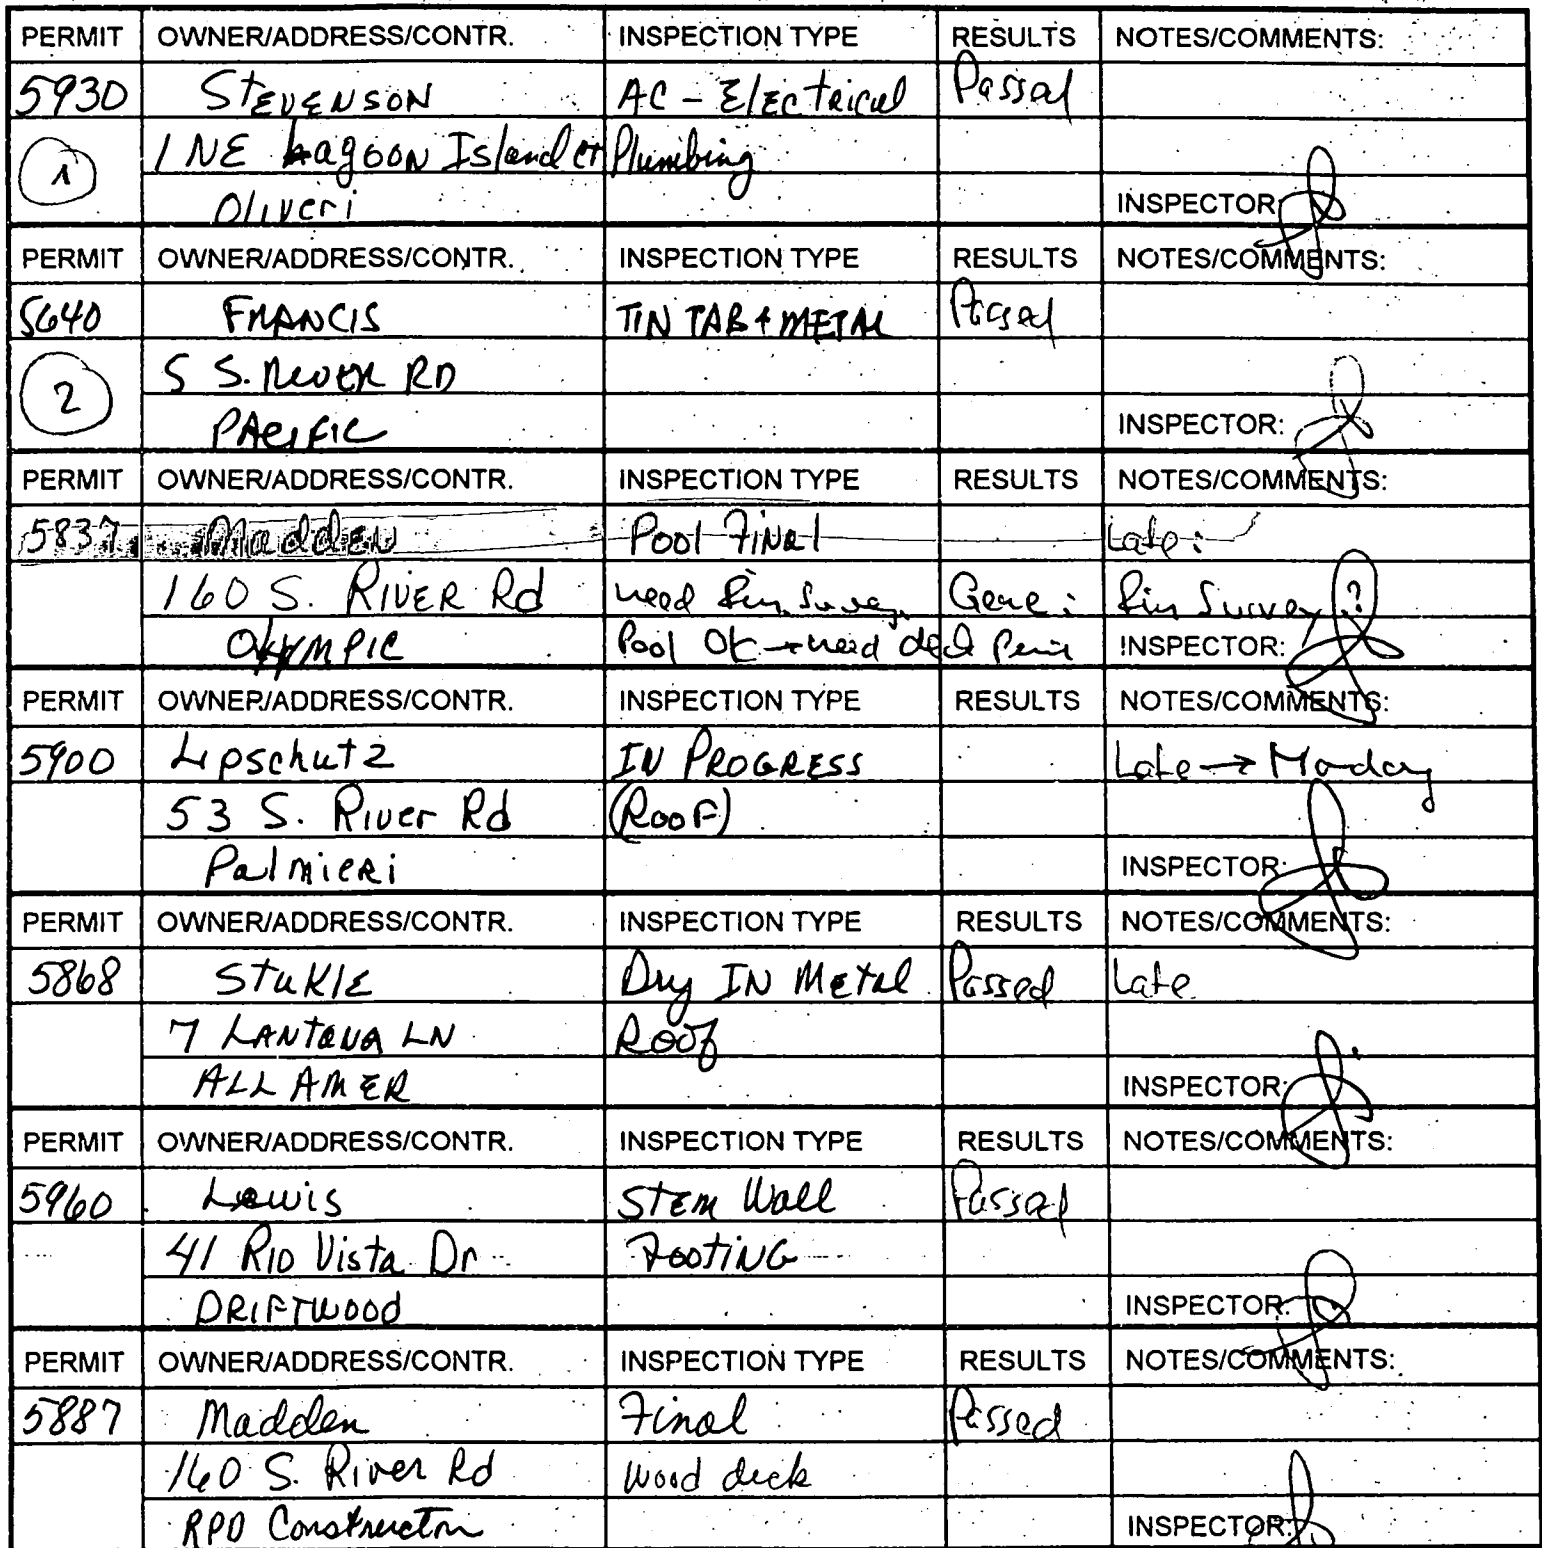 PERMIT OWNER/ADDRESS/CONTR. INSPECTION TYPE RESULTS NOTES/COMMENTS:
5930 STEVENSON AC - Electrical Passed
1 1 NE Lagoon Island ct Plumbing
Oliveri INSPECTOR:
PERMIT OWNER/ADDRESS/CONTR. INSPECTION TYPE RESULTS NOTES/COMMENTS:
5640 FRANCIS TIN TAB + METAL Passed
2 5 S. RIVER RD
PACIFIC INSPECTOR:
PERMIT OWNER/ADDRESS/CONTR. INSPECTION TYPE RESULTS NOTES/COMMENTS:
5837 Madden Pool FINAL Late:
160 S. RIVER Rd need Survey Gene: Survey?
OLYMPIC Pool OK → need deck INSPECTOR:
PERMIT OWNER/ADDRESS/CONTR. INSPECTION TYPE RESULTS NOTES/COMMENTS:
5900 Lipschutz IN PROGRESS Late → Monday
53 S. River Rd (ROOF)
Palmieri INSPECTOR:
PERMIT OWNER/ADDRESS/CONTR. INSPECTION TYPE RESULTS NOTES/COMMENTS:
5868 Stukle Dry IN Metal Passed Late
7 LANTANA LN Roof
ALL AMER INSPECTOR:
PERMIT OWNER/ADDRESS/CONTR. INSPECTION TYPE RESULTS NOTES/COMMENTS:
5960 Lewis STEM Wall Passed
41 RIO Vista Dr FOOTING
DRIFTWOOD INSPECTOR:
PERMIT OWNER/ADDRESS/CONTR. INSPECTION TYPE RESULTS NOTES/COMMENTS:
5887 Madden Final Passed
160 S. River Rd Wood deck
RPD Constructon INSPECTOR: